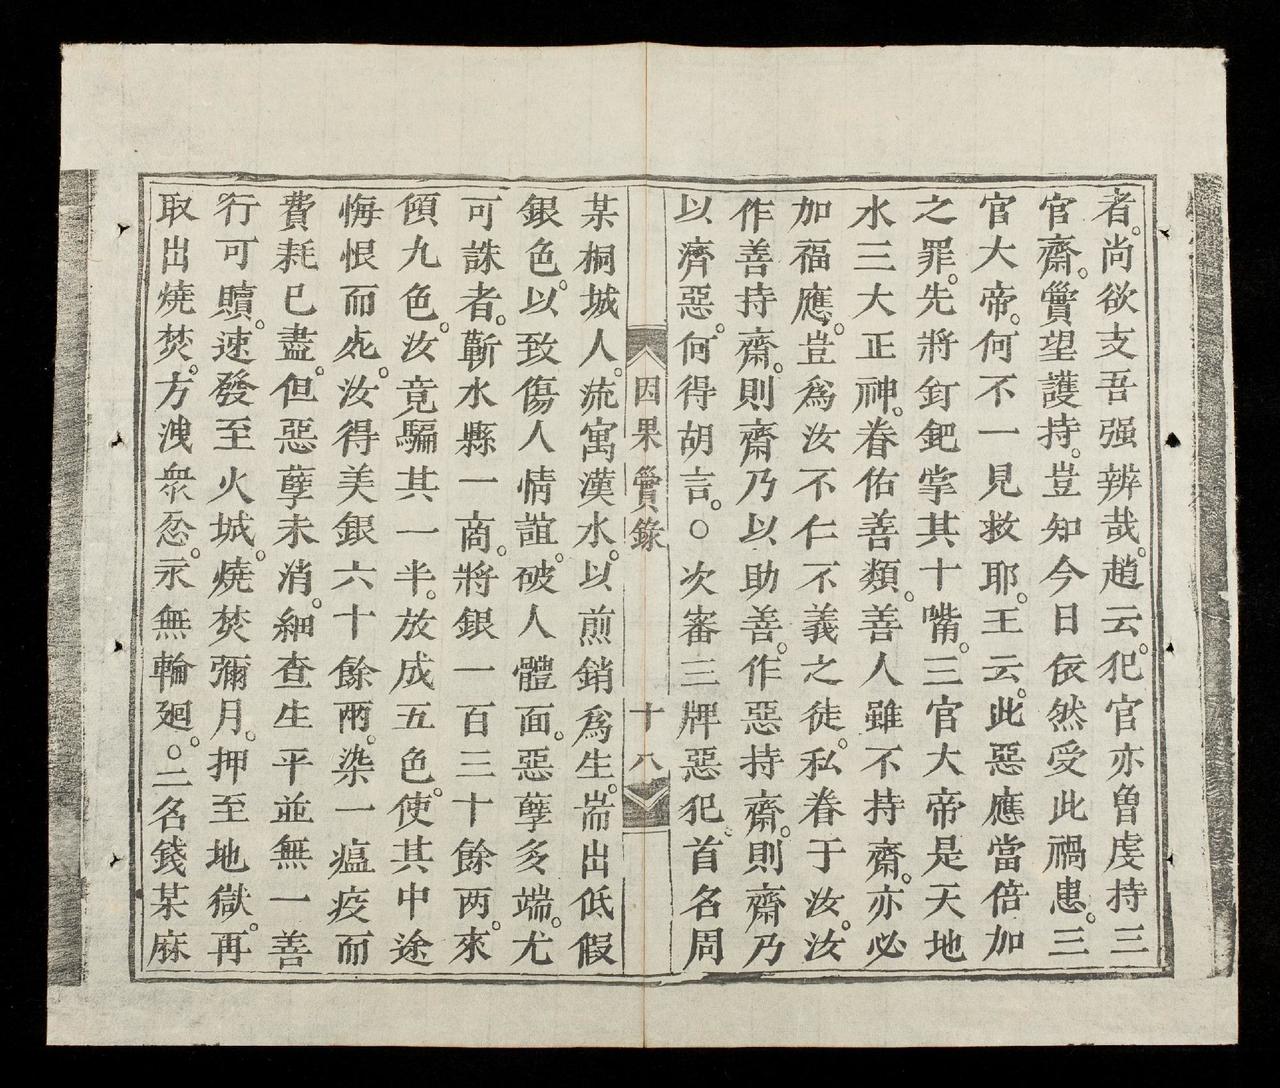 者。尚欲支吾强辨哉。趙云。犯官亦魯虔持三
官齋。實望護持。豈知今日依然受此禍患。三
官大帝。何不一見救耶。王云。此惡應當倍加
之罪。先將釘鈀掌其十嘴。三官大帝是天地
水三大正神。眷佑善類。善人雖不持齋。亦必
加福應。豈爲汝不仁不義之徒。私眷于汝。汝
作善持齋。則齋乃以助善。作惡持齋。則齋乃
以濟惡。何得胡言。○次審三牌惡犯。首名周
因果實錄 十八
某桐城人。流寓漢水。以煎銷爲生。耑出低假
銀色。以致傷人情誼。破人體面。惡孽多端。尤
可誅者。蘄水縣一商。將銀一百三十餘两。來
傾九色。汝竟騙其一半。放成五色。使其中途
悔恨而死。汝得美銀六十餘兩。染一瘟疫而
費耗已盡。但惡孽未消。細查生平並無一善
行可贖。速發至火城。燒焚彌月。押至地獄。再
取出燒焚。方洩衆忿。永無輪廻。○二名錢某麻